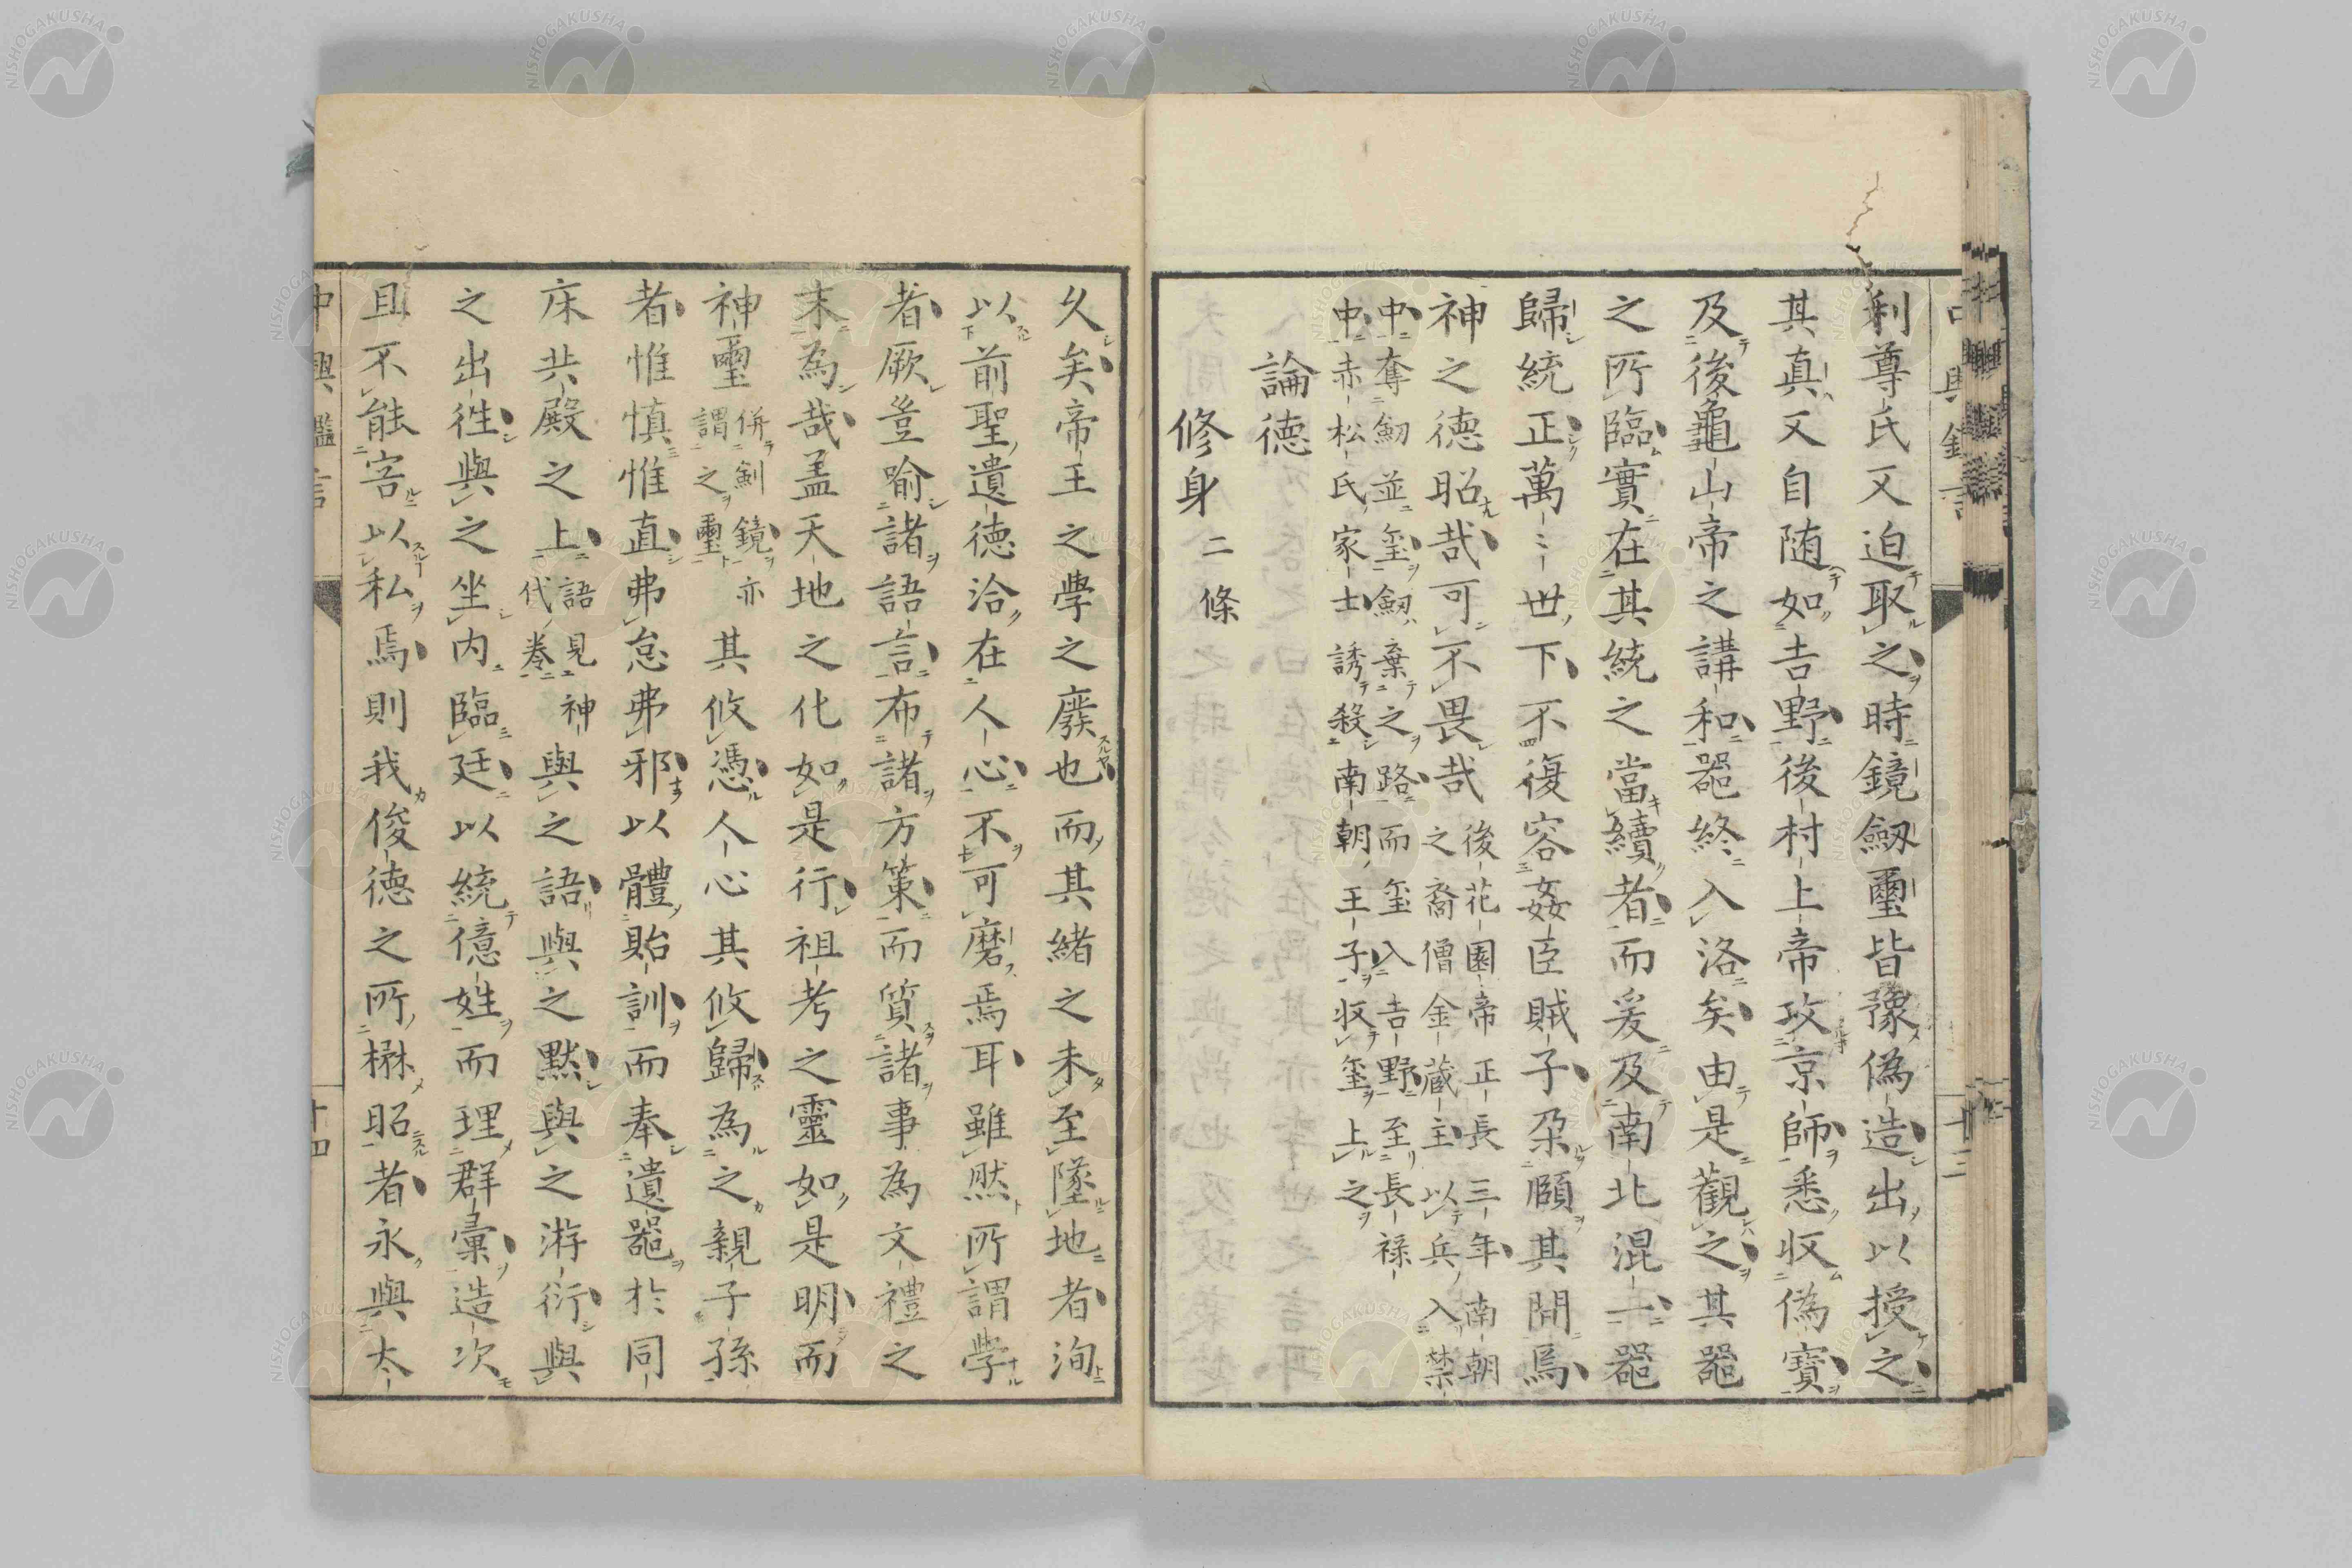 利尊氏又迫取之時鏡劔璽皆豫偽造出以授之
其真又自随如吉野後村上帝攻京師悉収偽寶
及後龜山帝之講和噐終入洛矣由是觀之其噐
之所臨實在其統之當續者而爰及南北混一噐
歸統正萬〻世下不復容姦臣賊子朶頤其間焉
神之德昭哉可不畏哉後花園帝正長三年南朝
之裔僧金蔵主以兵入禁
中奪劔並璽劔棄之路而璽入吉野至長禄
中赤松氏家士誘殺南朝王子収璽上之
論德
修身二條
久矣帝王之學之廢也而其緒之未至墜地者洵
以前聖遺德洽在人心不可磨焉耳雖然所謂學
者厥豈喻諸語言布諸方策而質諸事為文禮之
末為哉盖天地之化如是行祖考之靈如是明而
神璽併劍鏡亦
謂之璽其攸憑人心其攸歸為之親子孫
者惟慎惟直弗怠弗邪以體貽訓而奉遺噐於同
床共殿之上語見神
代卷與之語與之黙與之游衍與
之出徃與之坐内臨廷以統億姓而理群彙造次
且不能容以私焉則我俊德之所楙昭者永與太
中興鑑言
十三
中興鑑言
十四
NISHOGAKUSHA